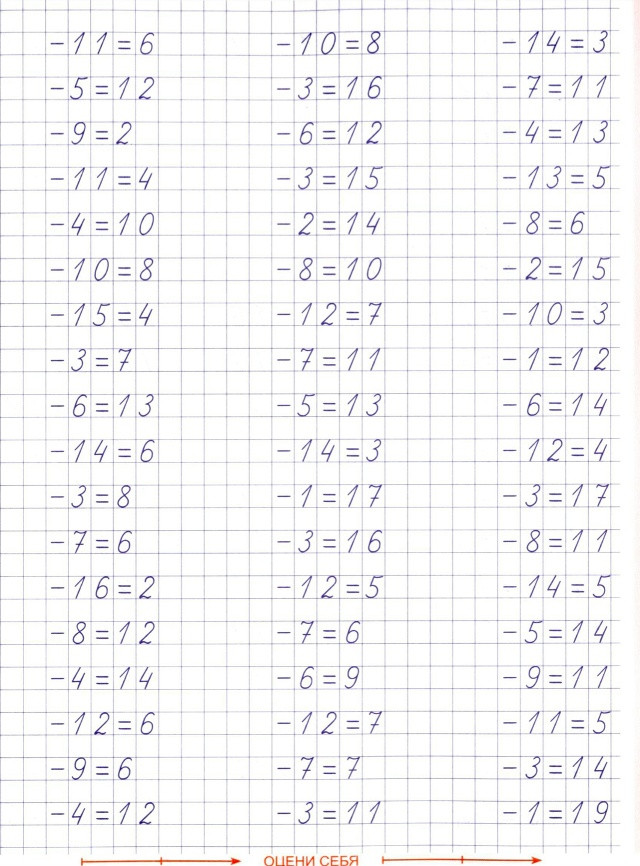 -11=6 -10=8 -14=3
-5=12 -3=16 -7=11
-9=2 -6=12 -4=13
-11=4 -3=15 -13=5
-4=10 -2=14 -8=6
-10=8 -8=10 -2=15
-15=4 -12=7 -10=3
-3=7 -7=11 -1=12
-6=13 -5=13 -6=14
-14=6 -14=3 -12=4
-3=8 -1=17 -3=17
-7=6 -3=16 -8=11
-16=2 -12=5 -14=5
-8=12 -7=6 -5=14
-4=14 -6=9 -9=11
-12=6 -12=7 -11=5
-9=6 -7=7 -3=14
-4=12 -3=11 -1=19
ОЦЕНИ СЕБЯ